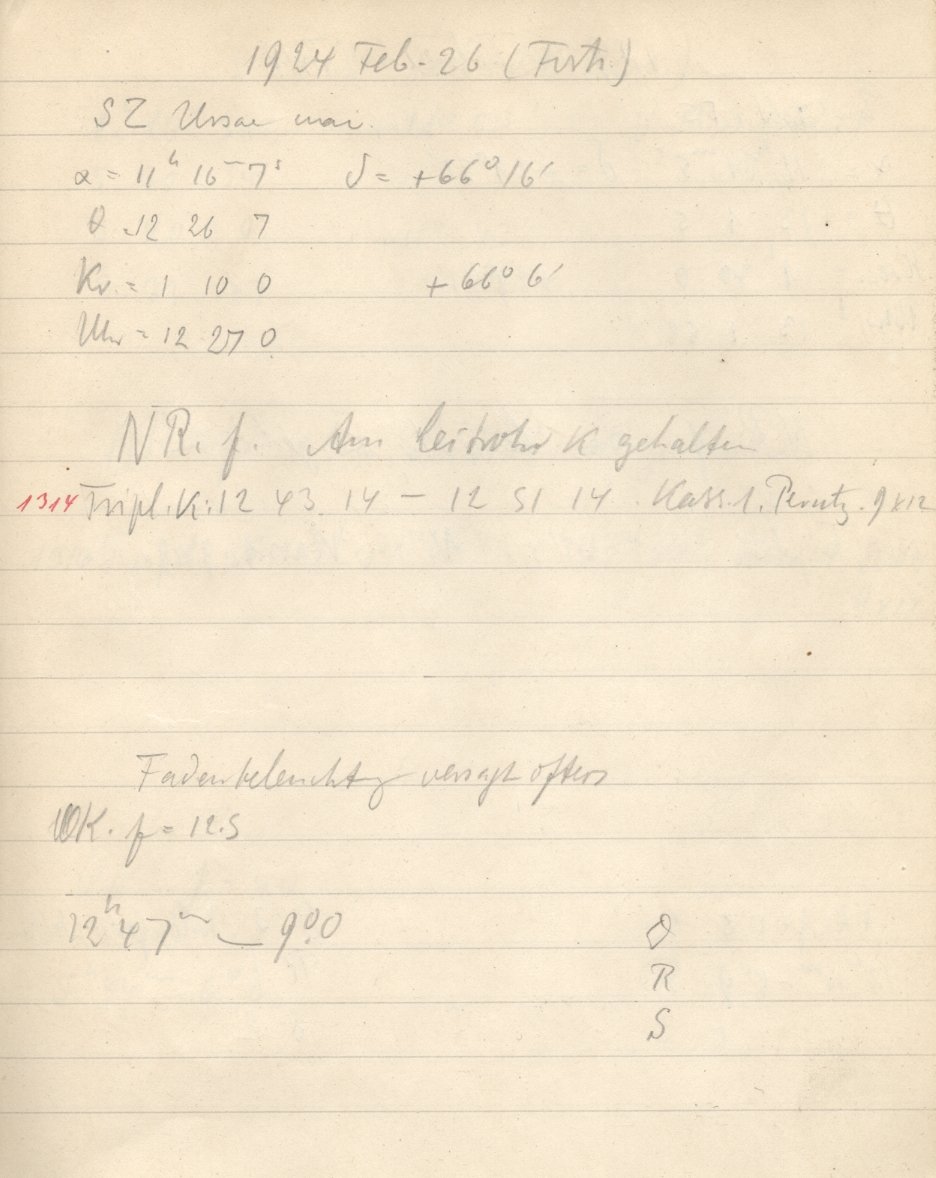 1924 Feb. 26 (Forts.)
SZ Ursae mai.
α = 11h 16m 7s δ = +66° 16'
θ = 12 26 7
Kr. = 1 10 0 +66° 6'
Uhr = 12 27 0
NR. f. Am Leitrohr K gehalten
1314 Tripl. K: 12 43 14 – 12 51 14 Kass. 1. Perutz. 9x12
Fadenbeleuchtg versagt öfters
K. f = 12.5
12h 47m — 9°.0
R
S